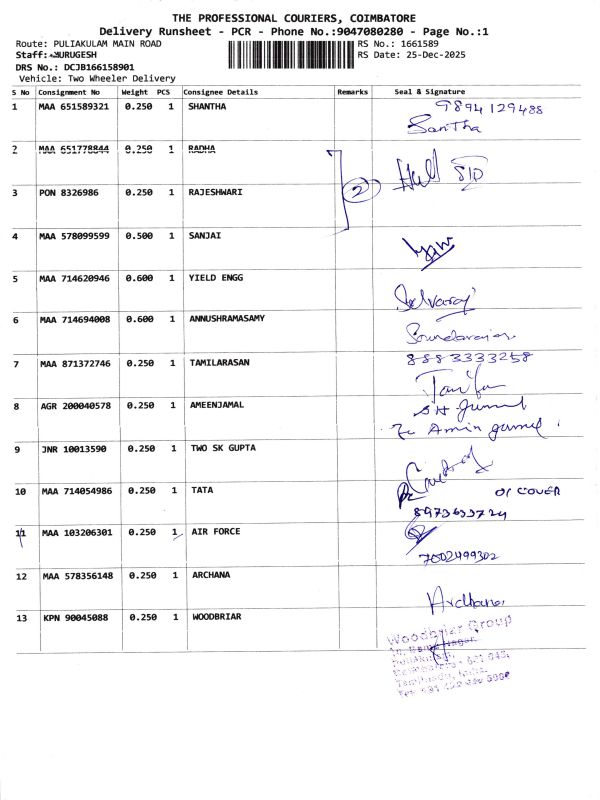 THE PROFESSIONAL COURIERS, COIMBATORE
Delivery Runsheet - PCR - Phone No.:9047080280 - Page No.:1
Route: PULIAKULAM MAIN ROAD
RS No.: 1661589
Staff: MURUGESH
RS Date: 25-Dec-2025
DRS No.: DCJB166158901
Vehicle: Two Wheeler Delivery
S No Consignment No Weight PCS Consignee Details Remarks Seal & Signature
1 MAA 651589321 0.250 1 SHANTHA 9894129488
Santha
2 MAA 651778844 0.250 1 RADHA
2
3 PON 8326986 0.250 1 RAJESHWARI
4 MAA 578099599 0.500 1 SANJAI
5 MAA 714620946 0.600 1 YIELD ENGG
Selvaraj
6 MAA 714694008 0.600 1 ANNUSHRAMASAMY
7 MAA 871372746 0.250 1 TAMILARASAN 8883333258
8 AGR 200040578 0.250 1 AMEENJAMAL
9 JNR 10013590 0.250 1 TWO SK GUPTA
10 MAA 714054986 0.250 1 TATA 01 COVER
8973633724
11 MAA 103206301 0.250 1 AIR FORCE
7002499302
12 MAA 578356148 0.250 1 ARCHANA
Archana
13 KPN 90045088 0.250 1 WOODBRIAR
Woodbriar Group